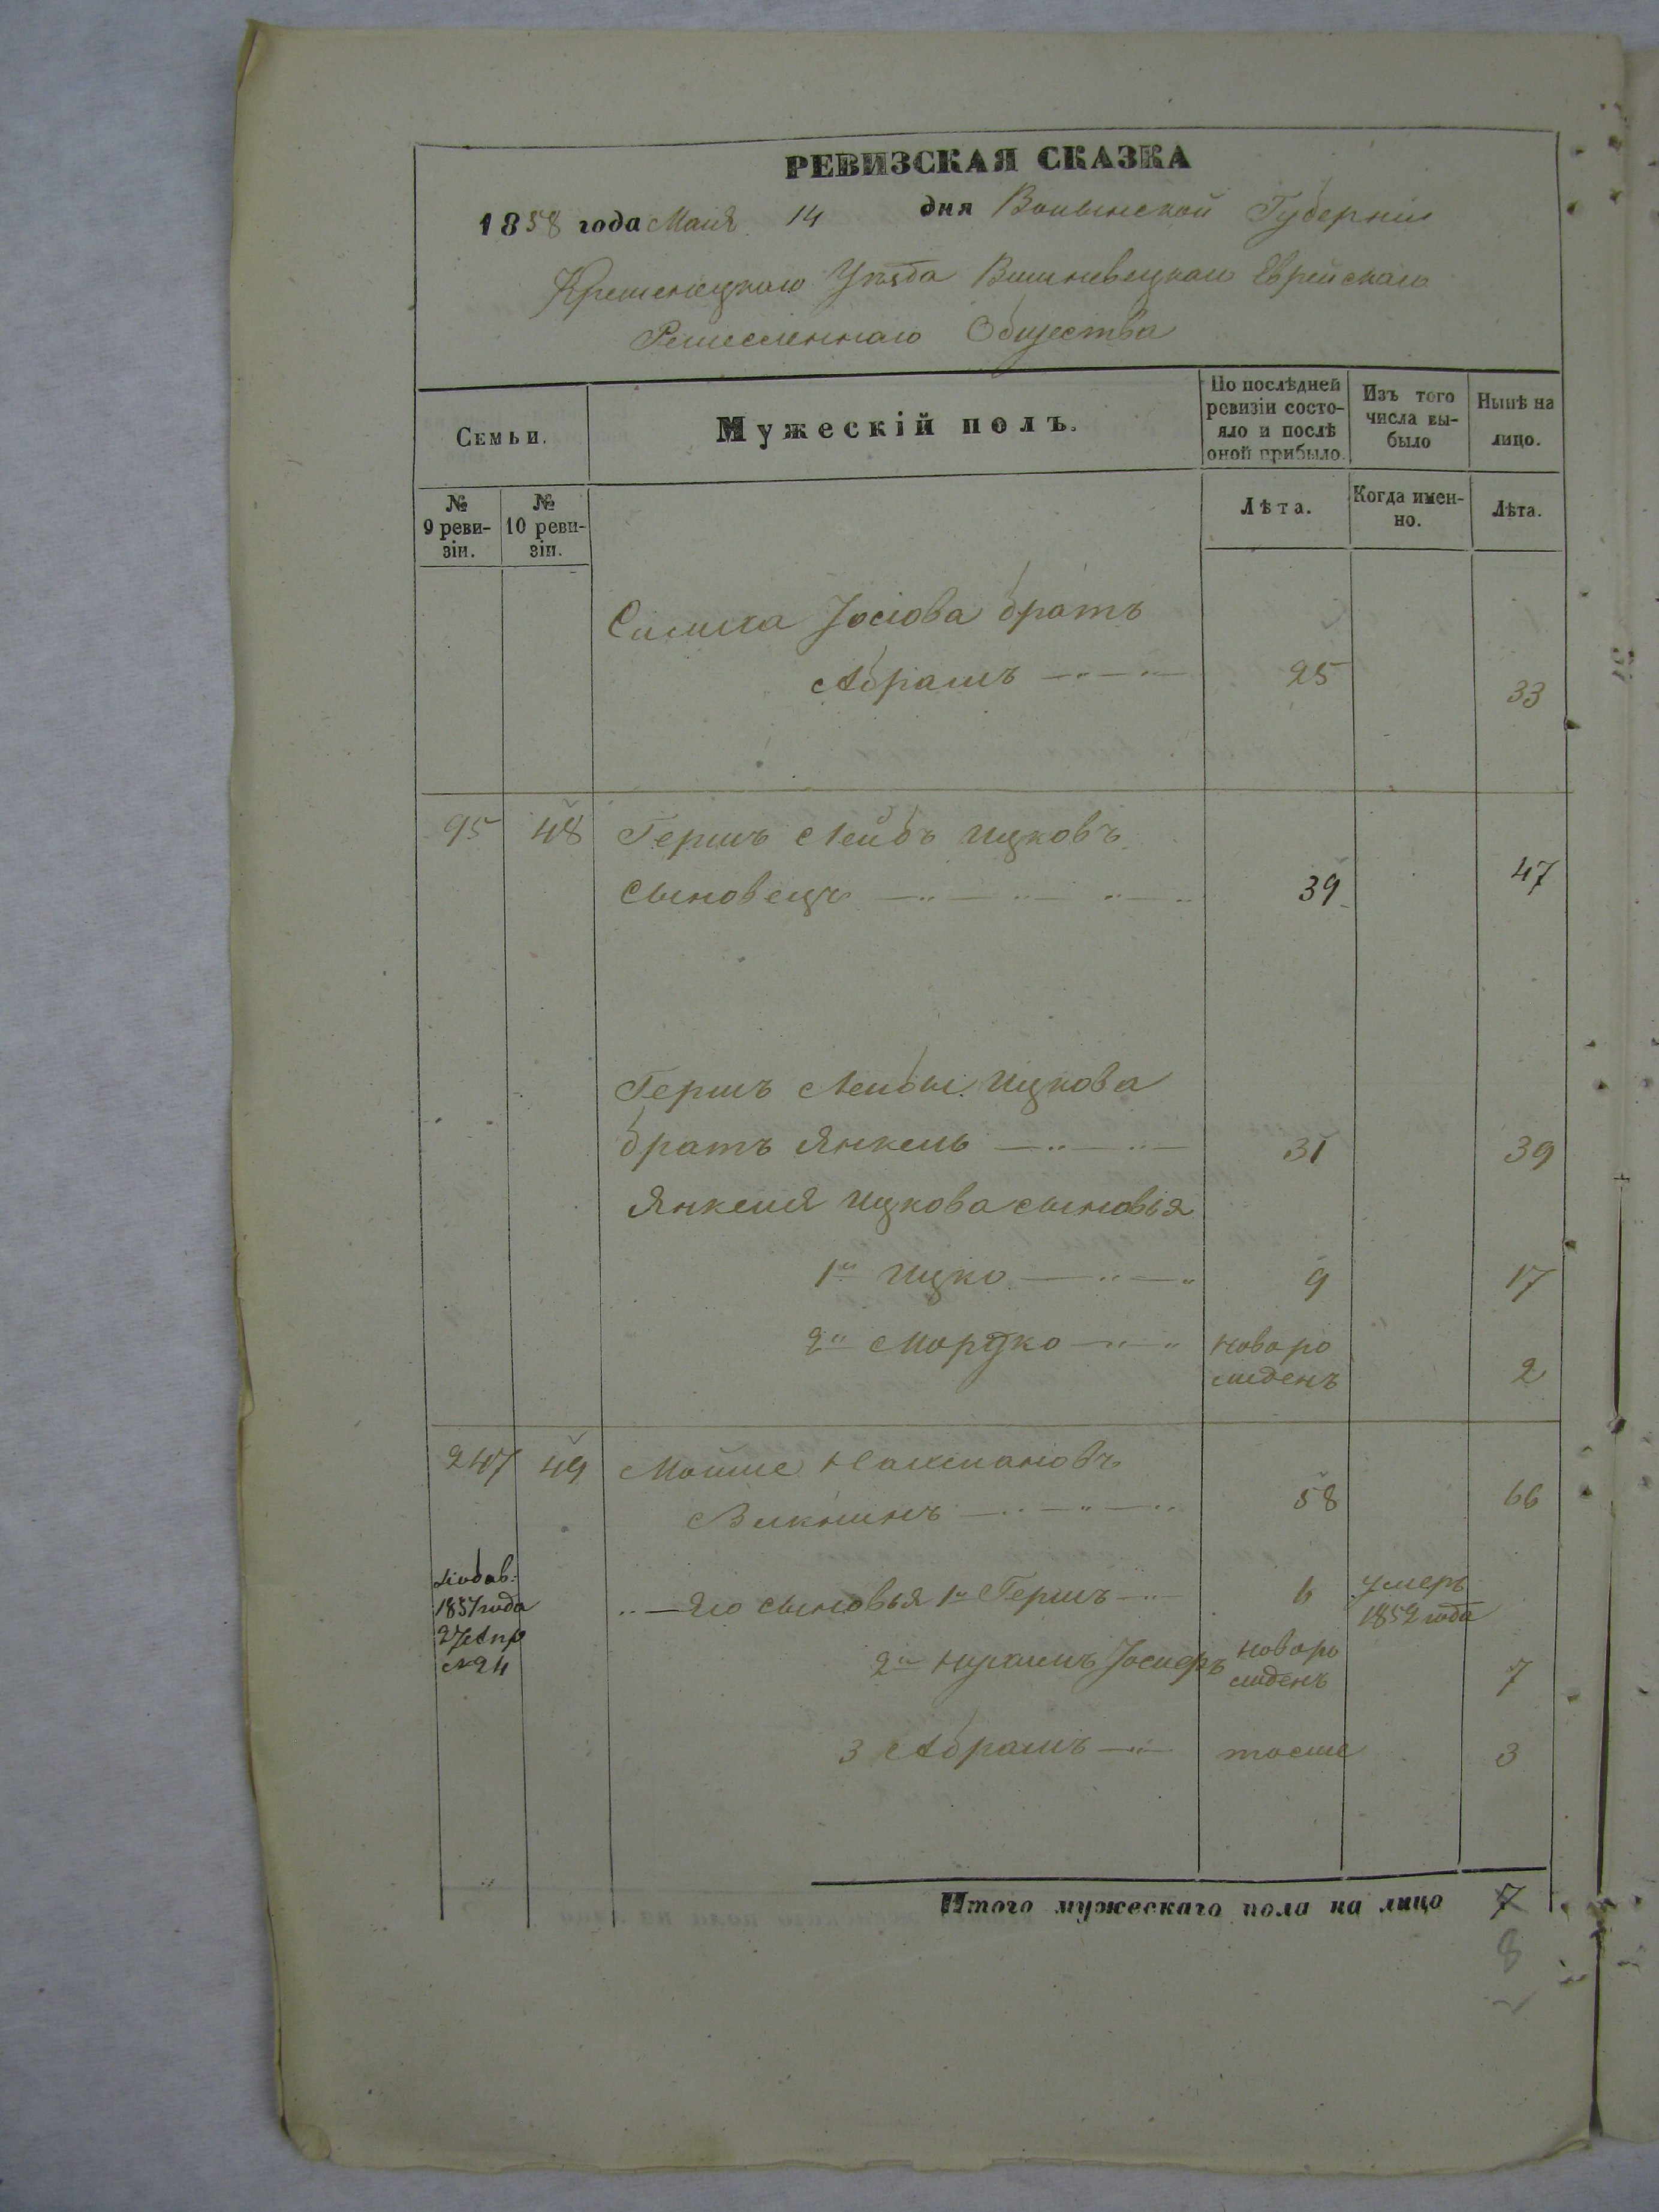 РЕВИЗСКАЯ СКАЗКА
1858 года Маія 14 дня Волынской Губерніи
Кременецкаго Уѣзда Вишневецкаго Еврейскаго
Ремесленнаго Общества
Семьи.
Мужескій полъ.
По послѣдней ревизіи состо-
яло и послѣ оной прибыло.
Изъ того числа вы-
было
Нынѣ на лицо.
№ 9 реви-
зіи.
№ 10 реви-
зіи.
Лѣта.
Когда имен-
но.
Лѣта.
Симха Іосіова братъ
Абрамъ 25 33
95 48 Гершъ Лейбъ Ицковъ
Сыновецъ 39 47
Гершъ Лейбы Ицкова
братъ Янкель 31 39
Янкеля Ицкова сыновья
1й Ицко 9 17
2й Мордко новоро
жденъ 2
247 49 Мойше Нахмановъ
58 66
1857 года
27 Апр
№ 24
Его сыновья 1й Гершъ 6 умеръ
1852 года
2й Іосифъ новоро
жденъ 7
3 Абрамъ тоже 3
Итого мужескаго пола на лицо 7
8